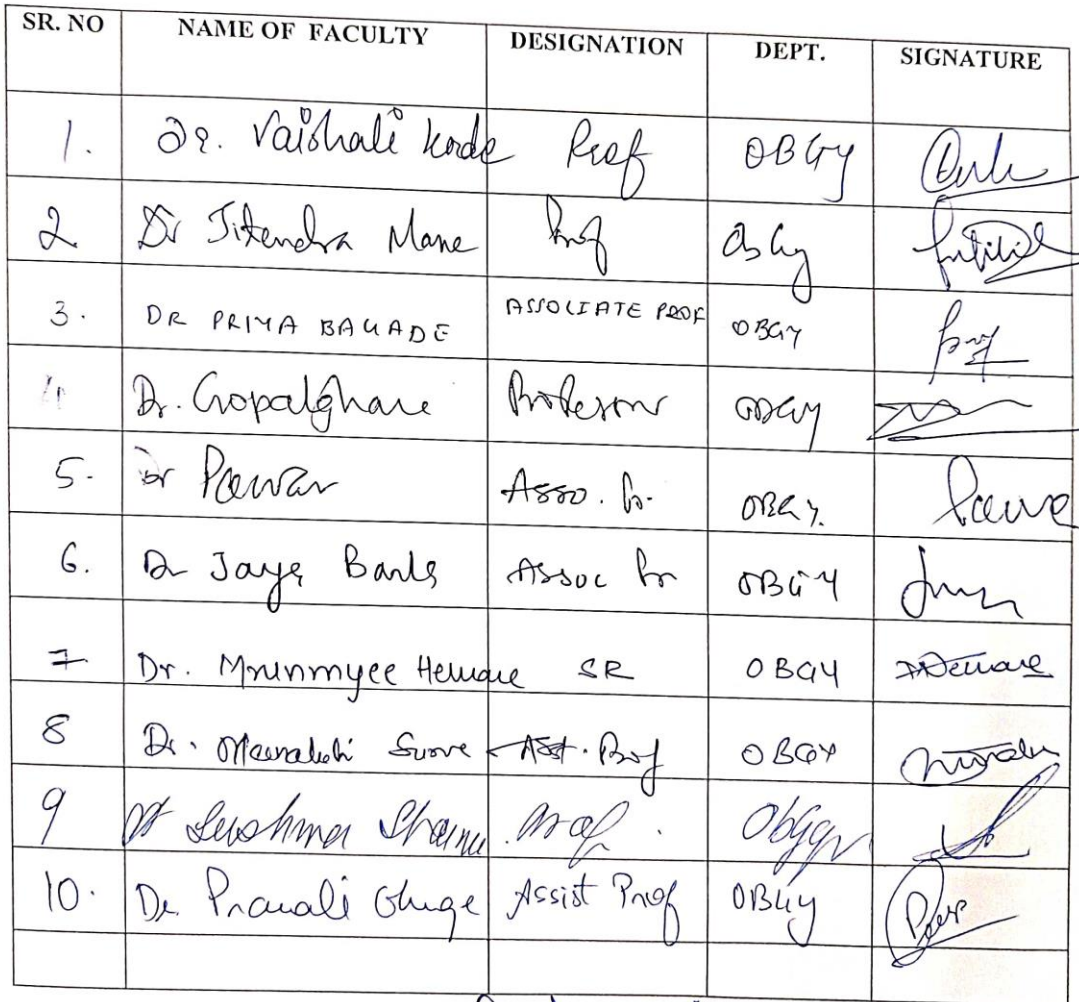 SR. NO NAME OF FACULTY DESIGNATION DEPT. SIGNATURE
1. Dr. Vaishali Korde Prof OBGY
2 Dr Jitendra Mane Prof ObGy
3. DR PRIYA BAGADE ASSOCIATE PROF OBGY
4 Dr. Gopalghare Professor OBGY
5. Dr Pawar Asso. Pr. OBGY. Pawar
6. Dr Jaya Assoc Pr OBGY
7 Dr. Mrunmyee SR OBGY
8 Dr. Meenakshi Surve Asst. Prof OBGY
9 Dr Sushma Prof. ObGy
10. Dr. Pranali Ghuge Assist Prof OBGy